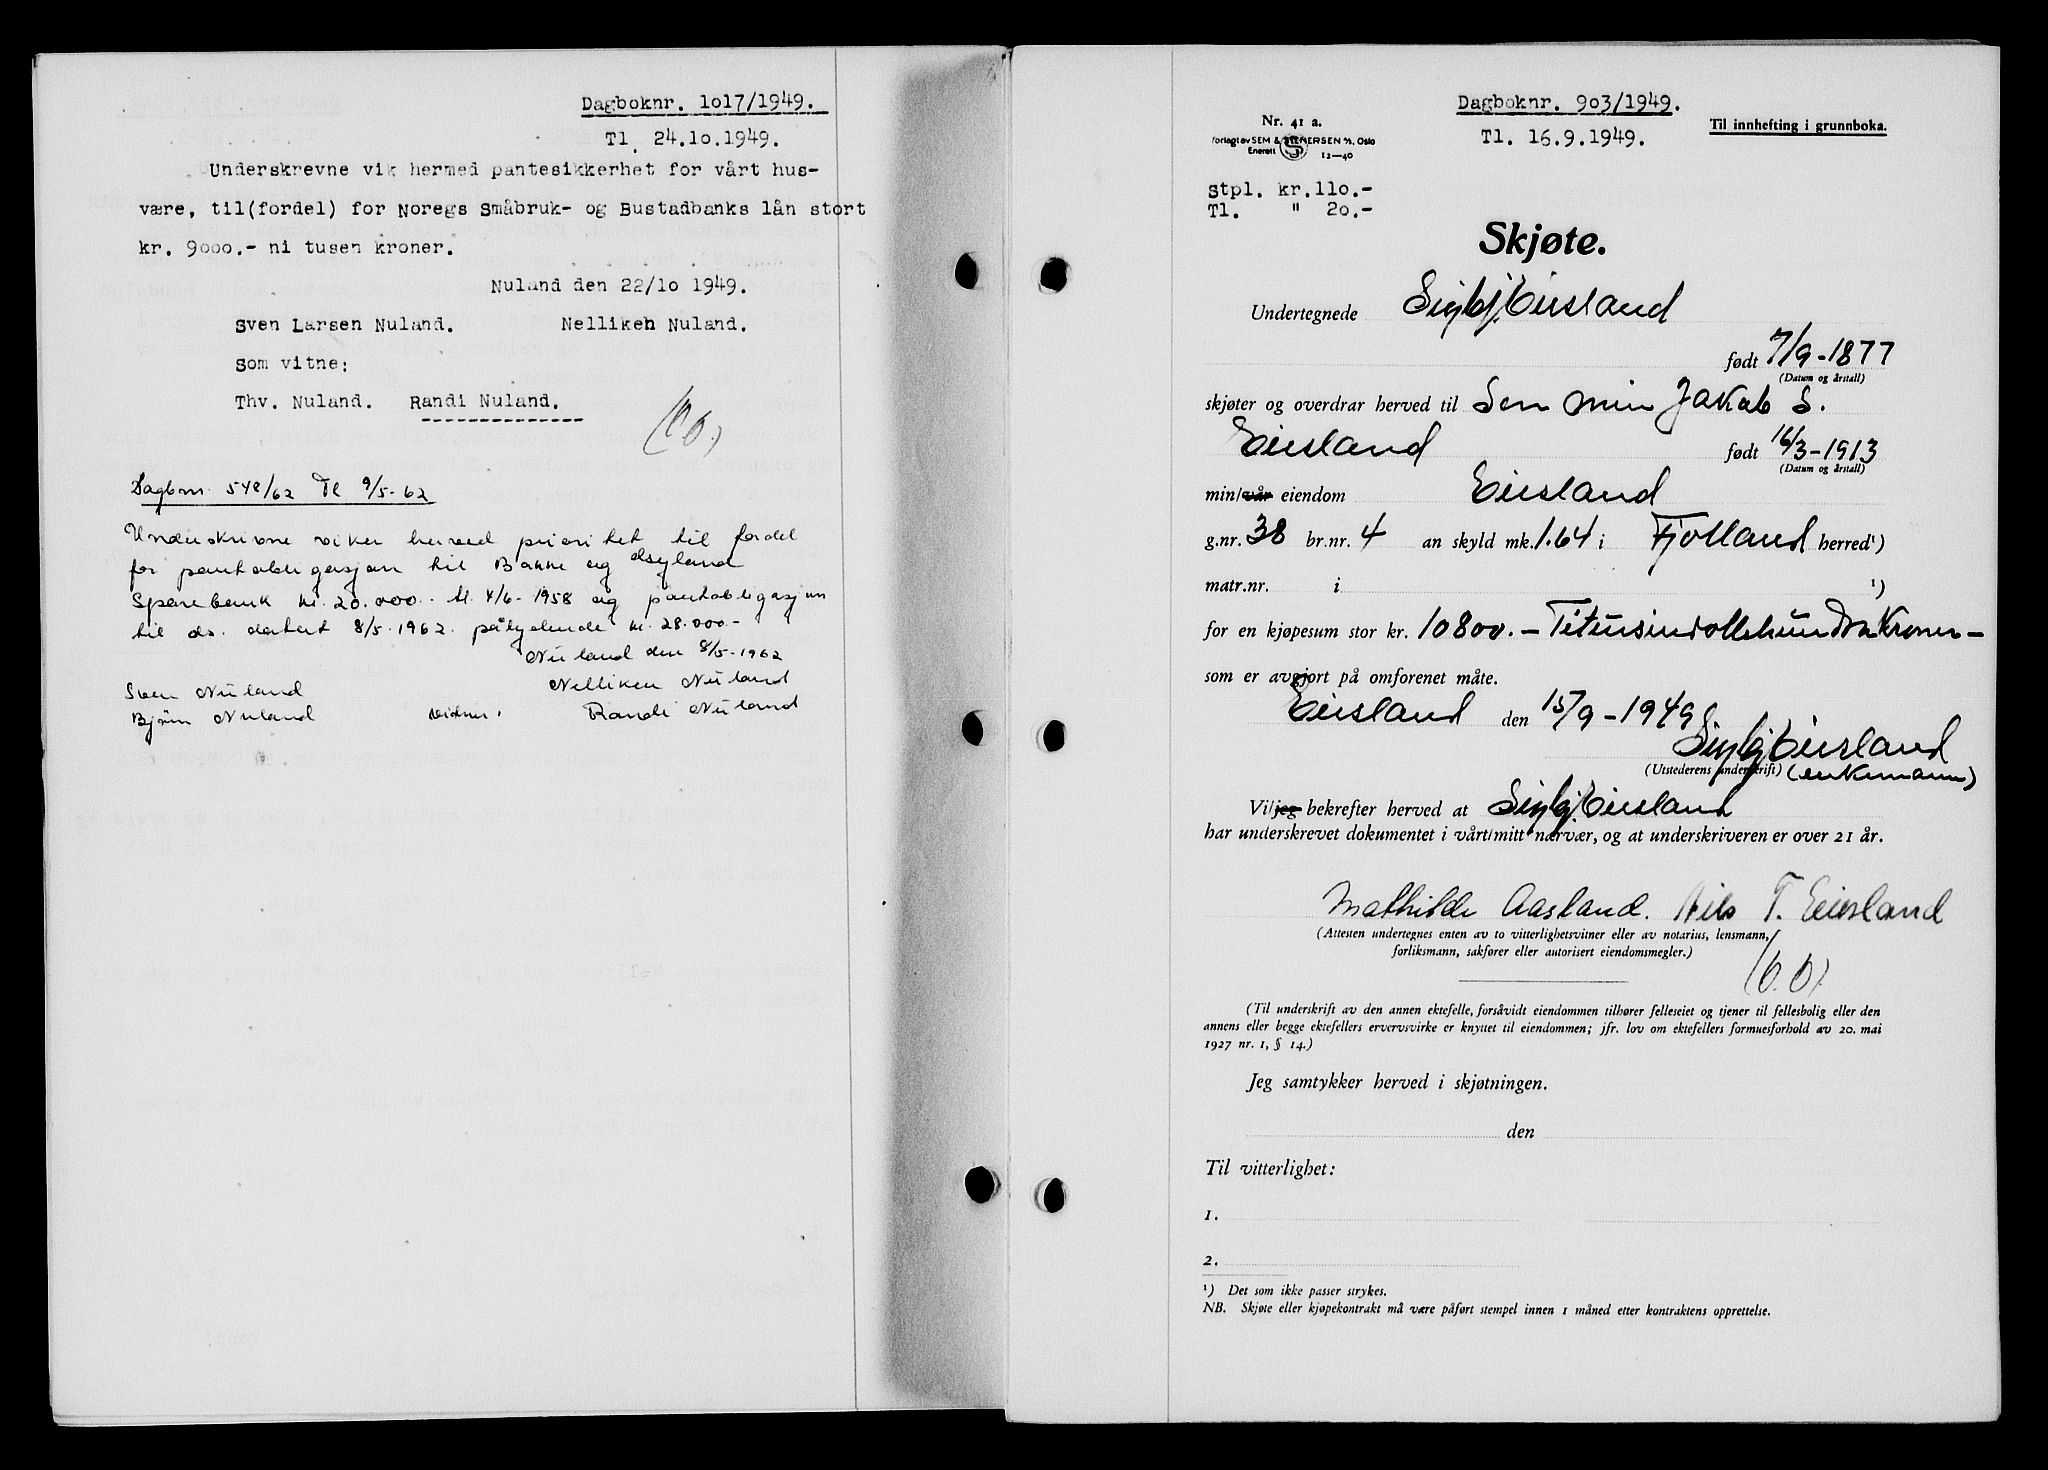 Dagboknr. 1017/1949.
Tl. 24.10.1949.
Underskrevne vik hermed pantesikkerhet for vårt hus-
være, til(fordel) for Noregs Småbruk- og Bustadbanks lån stort
kr. 9000.- ni tusen kroner.
Nuland den 22/10 1949.
Sven Larsen Nuland. Nelliken Nuland.
Som vitne:
Thv. Nuland. Randi Nuland.
Dagbnr. 548/62 Tl 9/5-62
Underskrivne viker herved prioritet til fordel
for pantobligasjon til Bakke og Øsyland
Sparebank kr. 20.000.- tl. 4/6-1958 og pantobligasjon
til do. datert 8/5-1962. pålydende kr. 28.000-
Nuland den 8/5-1962
Sven Nuland Nelliken Nuland
Bjørn Nuland vidner. Randi Nuland
Dagboknr. 903/1949.
Tl. 16.9.1949.
Til innhefting i grunnboka.
Nr. 41 a.
Forlagt av SEM & STENERSEN A/S, Oslo
Enerett S 12—40
Stpl. kr.110.-
Tl. " 20.-
Skjøte.
Undertegnede Sigbj. Eiesland
født 7/9-1877
(Datum og årstall)
skjøter og overdrar herved til Søn min Jakob S.
Eiesland født 16/3-1913
(Datum og årstall)
min/vår eiendom Eiesland
g.nr. 38 br.nr. 4 an skyld mk. 1.64 i Fjotland herred¹)
matr.nr. i ¹)
for en kjøpesum stor kr. 10800.- Titusindottehundra Kroner-
som er avgjort på omforenet måte.
Eiesland den 15/9-1949
Sigbj Eiesland
(Utstederens underskrift) (enkemann)
Vi/jeg bekrefter herved at Sigbj. Eiesland
har underskrevet dokumentet i vårt/mitt nærvær, og at underskriveren er over 21 år.
Mathilde Aasland. Nils T. Eiesland
(Attesten undertegnes enten av to vitterlighetsvitner eller av notarius, lensmann,
forliksmann, sakfører eller autorisert eiendomsmegler.)
(Til underskrift av den annen ektefelle, forsåvidt eiendommen tilhører felleseiet og tjener til fellesbolig eller den
annens eller begge ektefellers ervervsvirke er knyttet til eiendommen; jfr. lov om ektefellers formuesforhold av 20. mai
1927 nr. 1, § 14.)
Jeg samtykker herved i skjøtningen.
den
Til vitterlighet:
1.
2.
¹) Det som ikke passer strykes.
NB. Skjøte eller kjøpekontrakt må være påført stempel innen 1 måned etter kontraktens opprettelse.